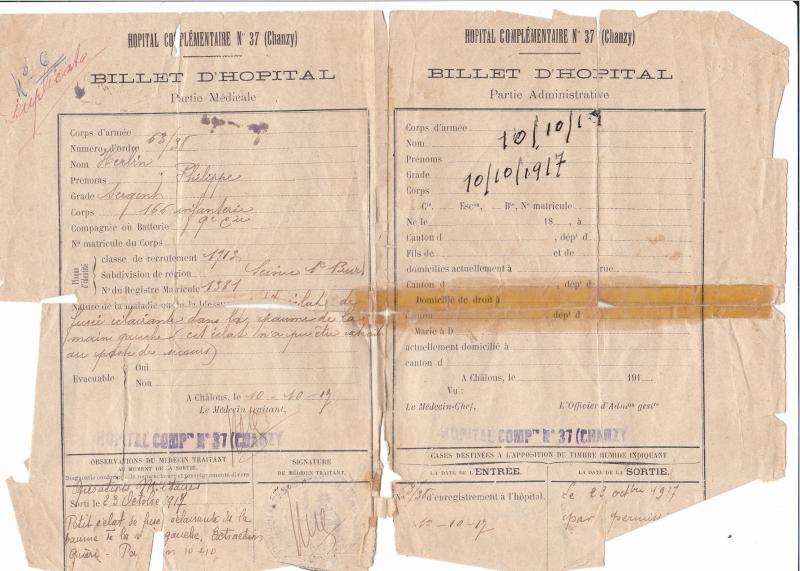 N° 6
Duplicata
HOPITAL COMPLÉMENTAIRE N° 37 (Chanzy)
BILLET D'HOPITAL
Partie Médicale
Corps d'armée
Numéro d'ordre 63/35
Nom Herlin
Prénoms Philippe
Grade Sergent
Corps 166 infanterie
Compagnie ou Batterie 9e Cie
N° matricule du Corps
Plaque d'identité
classe de recrutement 1912
Subdivision de région Seine Bur
N° du Registre Matricule 1381
Nature de la maladie ou de la bless
éclat de
fusée éclairante dans la paume de la
main gauche (cet éclat n'a pu être extrait
au poste de secours)
Evacuable
Oui
Non
A Châlons, le 10-10-17
Le Médecin traitant,
HOPITAL COMPre N° 37 (CHANZY
OBSERVATIONS DU MÉDECIN TRAITANT
AU MOMENT DE LA SORTIE.
Diagnostic
SIGNATURE
DU MÉDECIN TRAITANT.
Sorti le 23 Octobre 1917
Petit éclat de fusée éclairante de la
paume de la gauche, Extraction
Guéri - 10 + 10
HOPITAL COMPLÉMENTAIRE N° 37 (Chanzy)
BILLET D'HOPITAL
Partie Administrative
Corps d'armée
Nom 10/10/17
Prénoms
Grade 10/10/1917
Corps
Cie, Escon, Bie, N° matricule
Né le 18 , à
Canton d , dépt d
Fils de et de
domiciliés actuellement à rue
Canton d , dépt d
Domicile de droit à
Canton , dépt d
Marié à D
actuellement domicilié à
canton d
A Châlons, le 191
Vu :
Le Médecin-Chef, L'Officier d'Admon gestre
HOPITAL COMPre N° 37 (CHANZY
CASES DESTINÉES A L'APPOSITION DU TIMBRE HUMIDE INDIQUANT
LA DATE DE L'ENTRÉE. LA DATE DE LA SORTIE.
N° d'enregistrement à l'hôpital.
10-10-17
Le 23 octbre 1917
par permiss